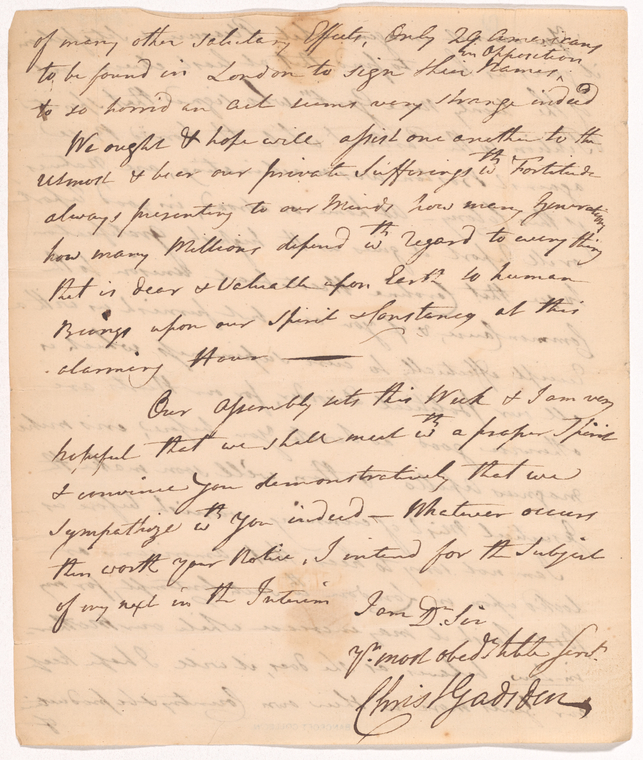 of many other salutary Effects. Only 29 Americans
to be found in London to sign their Names, in Opposition
to so horrid an act seems very strange indeed
We ought & hope will assist one another to the
utmost & bear our private Sufferings wth Fortitude
always presenting to our Minds how many Generations
how many Millions depend wth regard to every thing
that is dear & Valuable upon Earth to human
Beings upon our Spirit & Constancy at this
alarming Hour —
Our Assembly sits this Week & I am very
hopeful that we shall meet wth a proper Spirit
& convince you demonstratively that we
Sympathize wth You indeed — Whatever occurs
then worth your Notice, I intend for the Subject
of my next in the Interim
I am Dr. Sir
Yr. most obedt. hble Servt.
Christ Gadsden